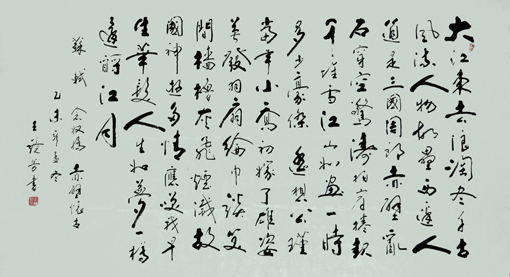 大江東去浪淘盡千古
風流人物故壘西邊人
道是三國周郎赤壁亂
石穿空驚濤拍岸捲起
千堆雪江山如畫一時
多少豪傑 遙想公瑾
當年小喬初嫁了雄姿
英發羽扇綸巾談笑
間檣櫓灰飛煙滅故
國神遊多情應笑我早
生華髮人生如夢一樽
還酹江月
蘇軾 念奴嬌 赤壁懷古
乙未年孟冬
王 芳書